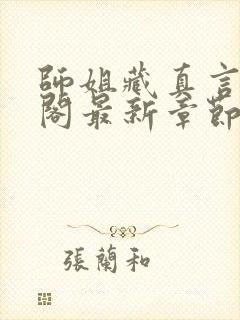 師姐藏真言
閣最新章節
張蘭和